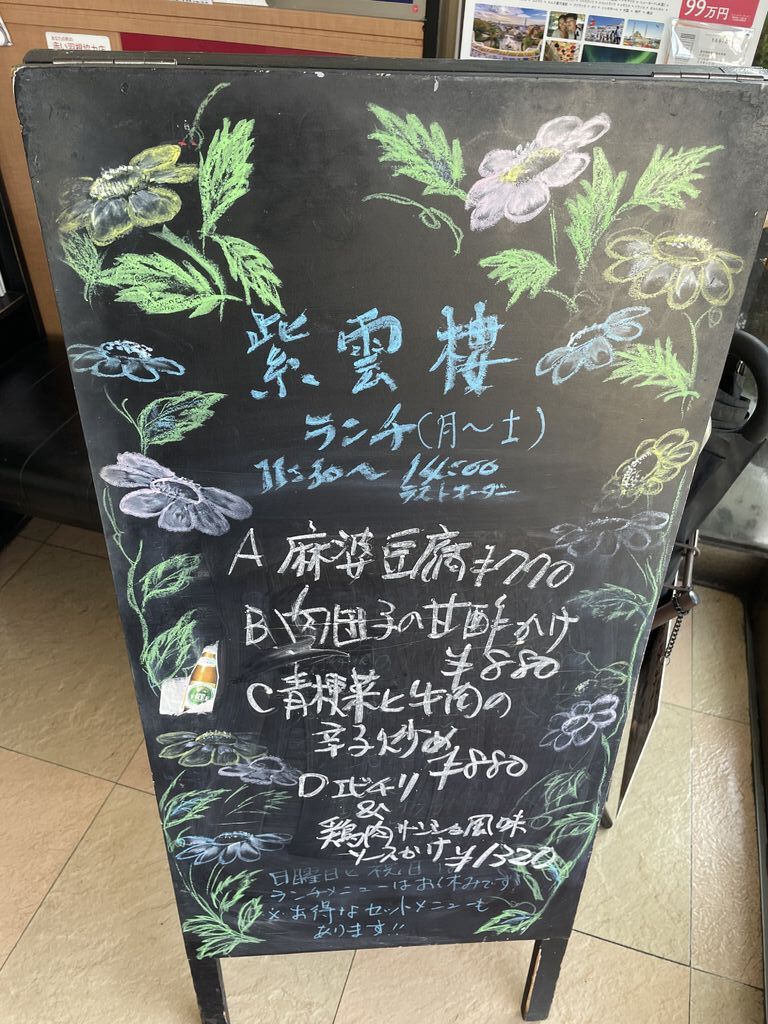 99万円
赤い羽根協力店
紫雲楼
ランチ(月～土)
11:30～ 14:00
ラストオーダー
A 麻婆豆腐 ¥770
B 肉団子の甘酢かけ
¥880
C 青梗菜と牛肉の
辛子炒め
¥880
D エビチリ
&
鶏肉 風味
ソースかけ ¥1320
日曜日と祝日
ランチメニューはお休みです
※お得なセットメニューも
あります!!